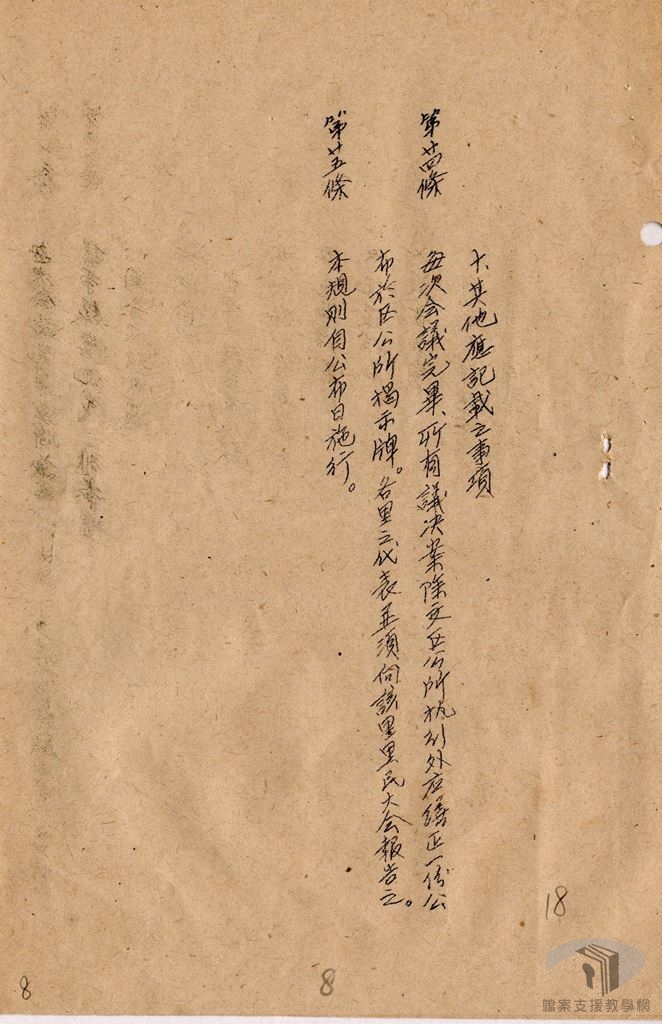 十、其他應記載之事項
第廿四條 每次会議完畢、所有議决案除交区公所执行外应繕正一份公
布於区公所揭示牌。各里之代表並須向該里里民大会報告之。
第廿五條 本規則自公布日施行。
18
8
8
檔案支援教學網